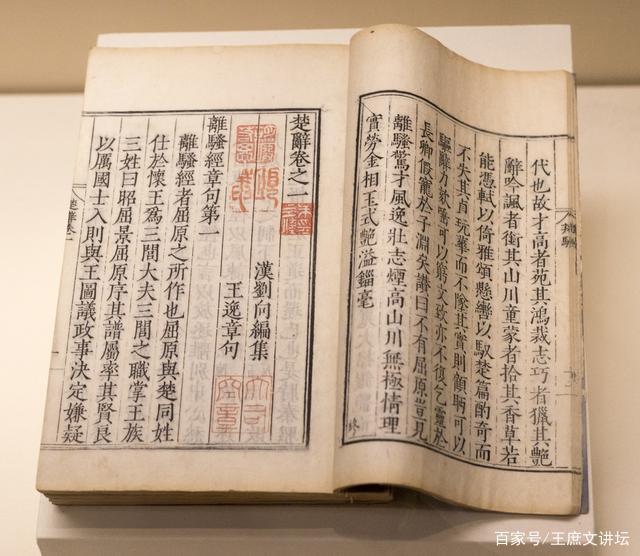 代也故才高者苑其鴻裁志巧者獵其艷
辭吟諷者銜其山川童蒙者拾其香草若
能憑軾以倚雅頌懸轡以馭楚篇酌奇而
不失其貞玩華而不墜其實則顧盼可以
驅辭力欬唾可以窮文致亦不復乞靈於
長卿假寵於子淵矣讚曰不有屈原豈見
離騷驚才風逸壯志煙高山川無極情理
實勞金相玉式艷溢錙毫
終
楚辭卷之一
漢劉向編集
王逸章句
離騷經章句第一
離騷經者屈原之所作也屈原與楚同姓
仕於懷王爲三閭大夫三閭之職掌王族
三姓曰昭屈景屈原序其譜屬率其賢良
以厲國士入則與王圖議政事決定嫌疑
百家号/王庶文讲坛